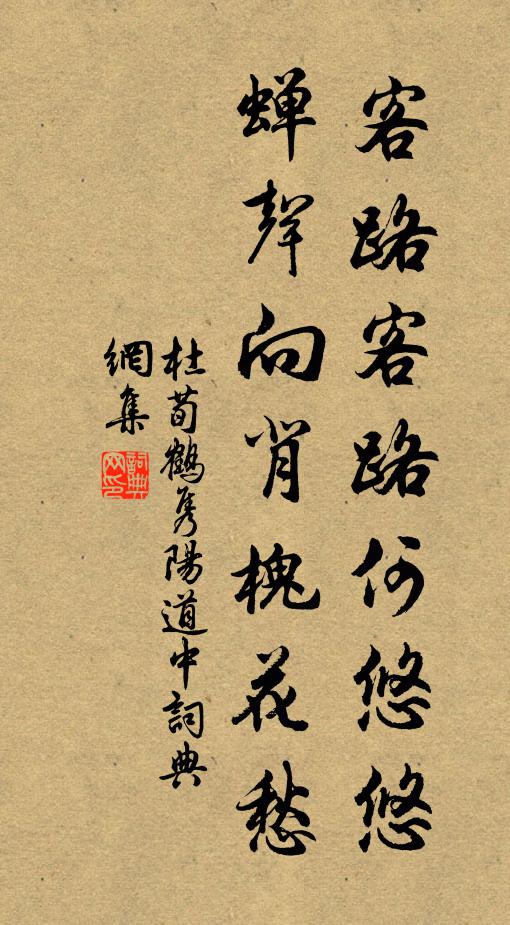 客路客路何悠悠
蟬聲向背槐花愁
杜荀鶴雋陽道中詞典
網集
詞典網印